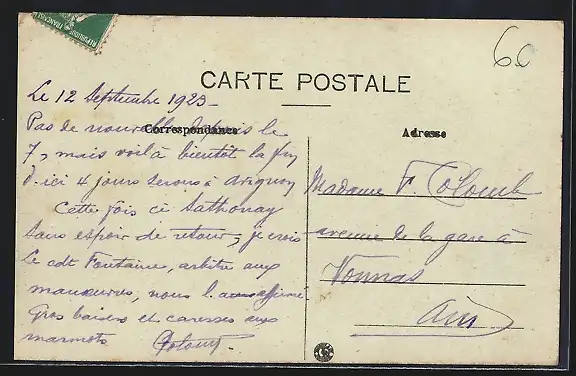 REPUBLIQUE FRANÇAISE
60
CARTE POSTALE
Correspondance
Adresse
Le 12 Septembre 1923
Pas de nouvelle depuis le
7, mais voilà bientôt la fin
d'ici 4 jours serons à Avignon
Cette fois ci Sathonay
sans espoir de retour, je crois
Le cdt Fontaine, arbitre aux
manœuvres, nous l'a affirmé
Gros baisers et caresses aux
marmots Colomb
Madame F. Colomb
avenue de la gare à
Vonnas
Ain